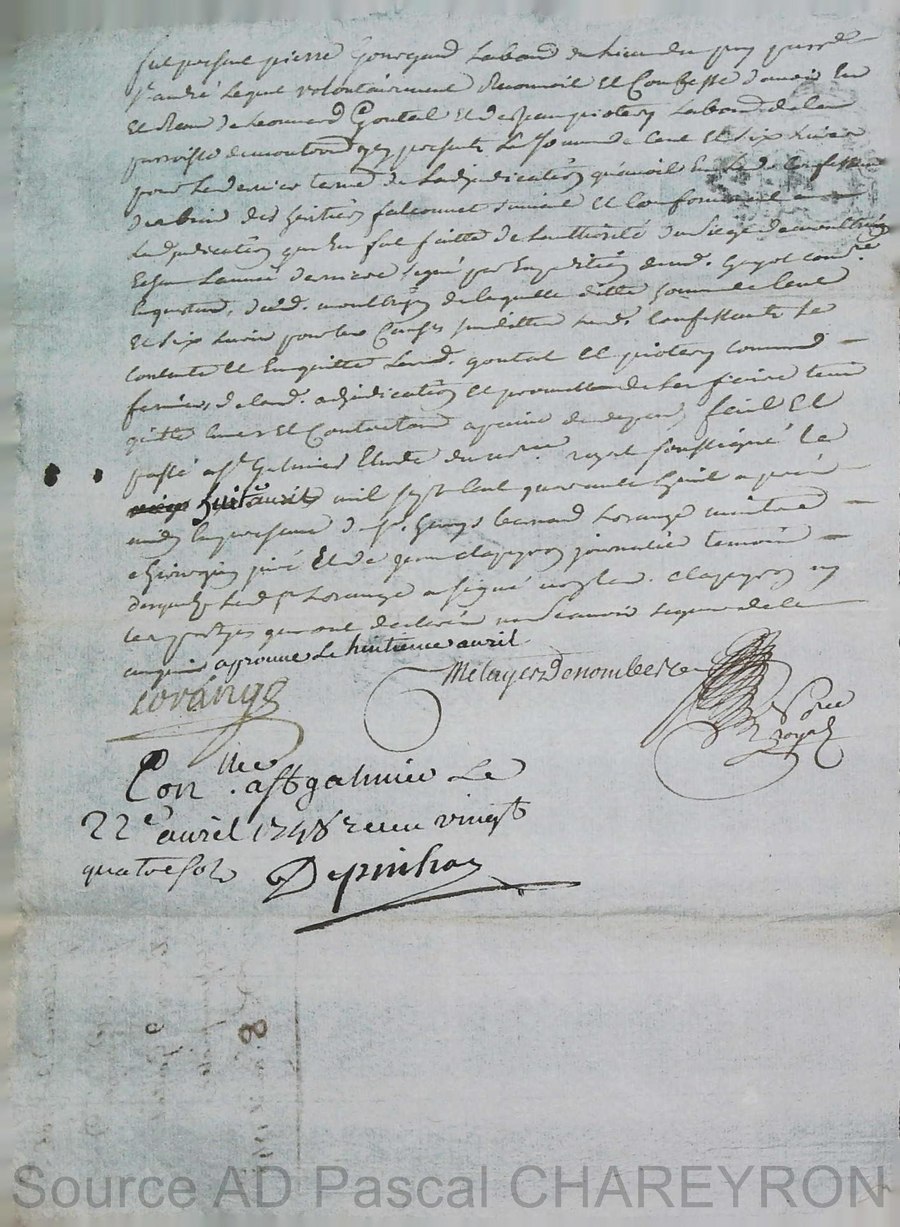 fut present pierre Gourgaud Laboureur du lieu du puy parroisse
St andré Lequel volontairement Reconnoit Et Confesse d'avoir Eu
Et Receu de Leonnard Goutal Et de Jean piotery Laboureurs de la
parroisse de montverdun presents La somme de Cent Et six Livres
pour Le dernier terme de Ladjudication quavoit
du bien des heritiers falconnet suivant Et Conformement
Ladjudication qui En fut faitte de Lauthorité du siege de montbrison
Lannée derniere signé par Expedition dud. Guyot
dud. montbrison de laquelle ditte somme de Cent
Et six Livres pour les Causes susdittes Led. Confessant Se
Contente Et En quitte Lesd. goutal Et piotery comme
fermiers de lad. adjudication Et promet de Les en faire tenir
quitte Envers Et Contre tous a peine de depens fait Et
passé a St Galmier Etude du notaire royal soussigné le
huit avril mil sept Cent quarante huit apres
midy En presence de Sr. Lorange maitre
chirurgien juré Et de Jean Clapeyron journalier temoins
desquels Led. Sr Lorange a signé non led. Clapeyron ny
les parties qui ont declarés ne Scavoir signer de ce
enquis approuvé Le huitieme avril
Lorange
Metayer Denombret
Nre
royal
Con.llee a St galmier Le
22e avril 1748 receu vingt
quatre sols Depinhac
8
Source AD Pascal CHAREYRON